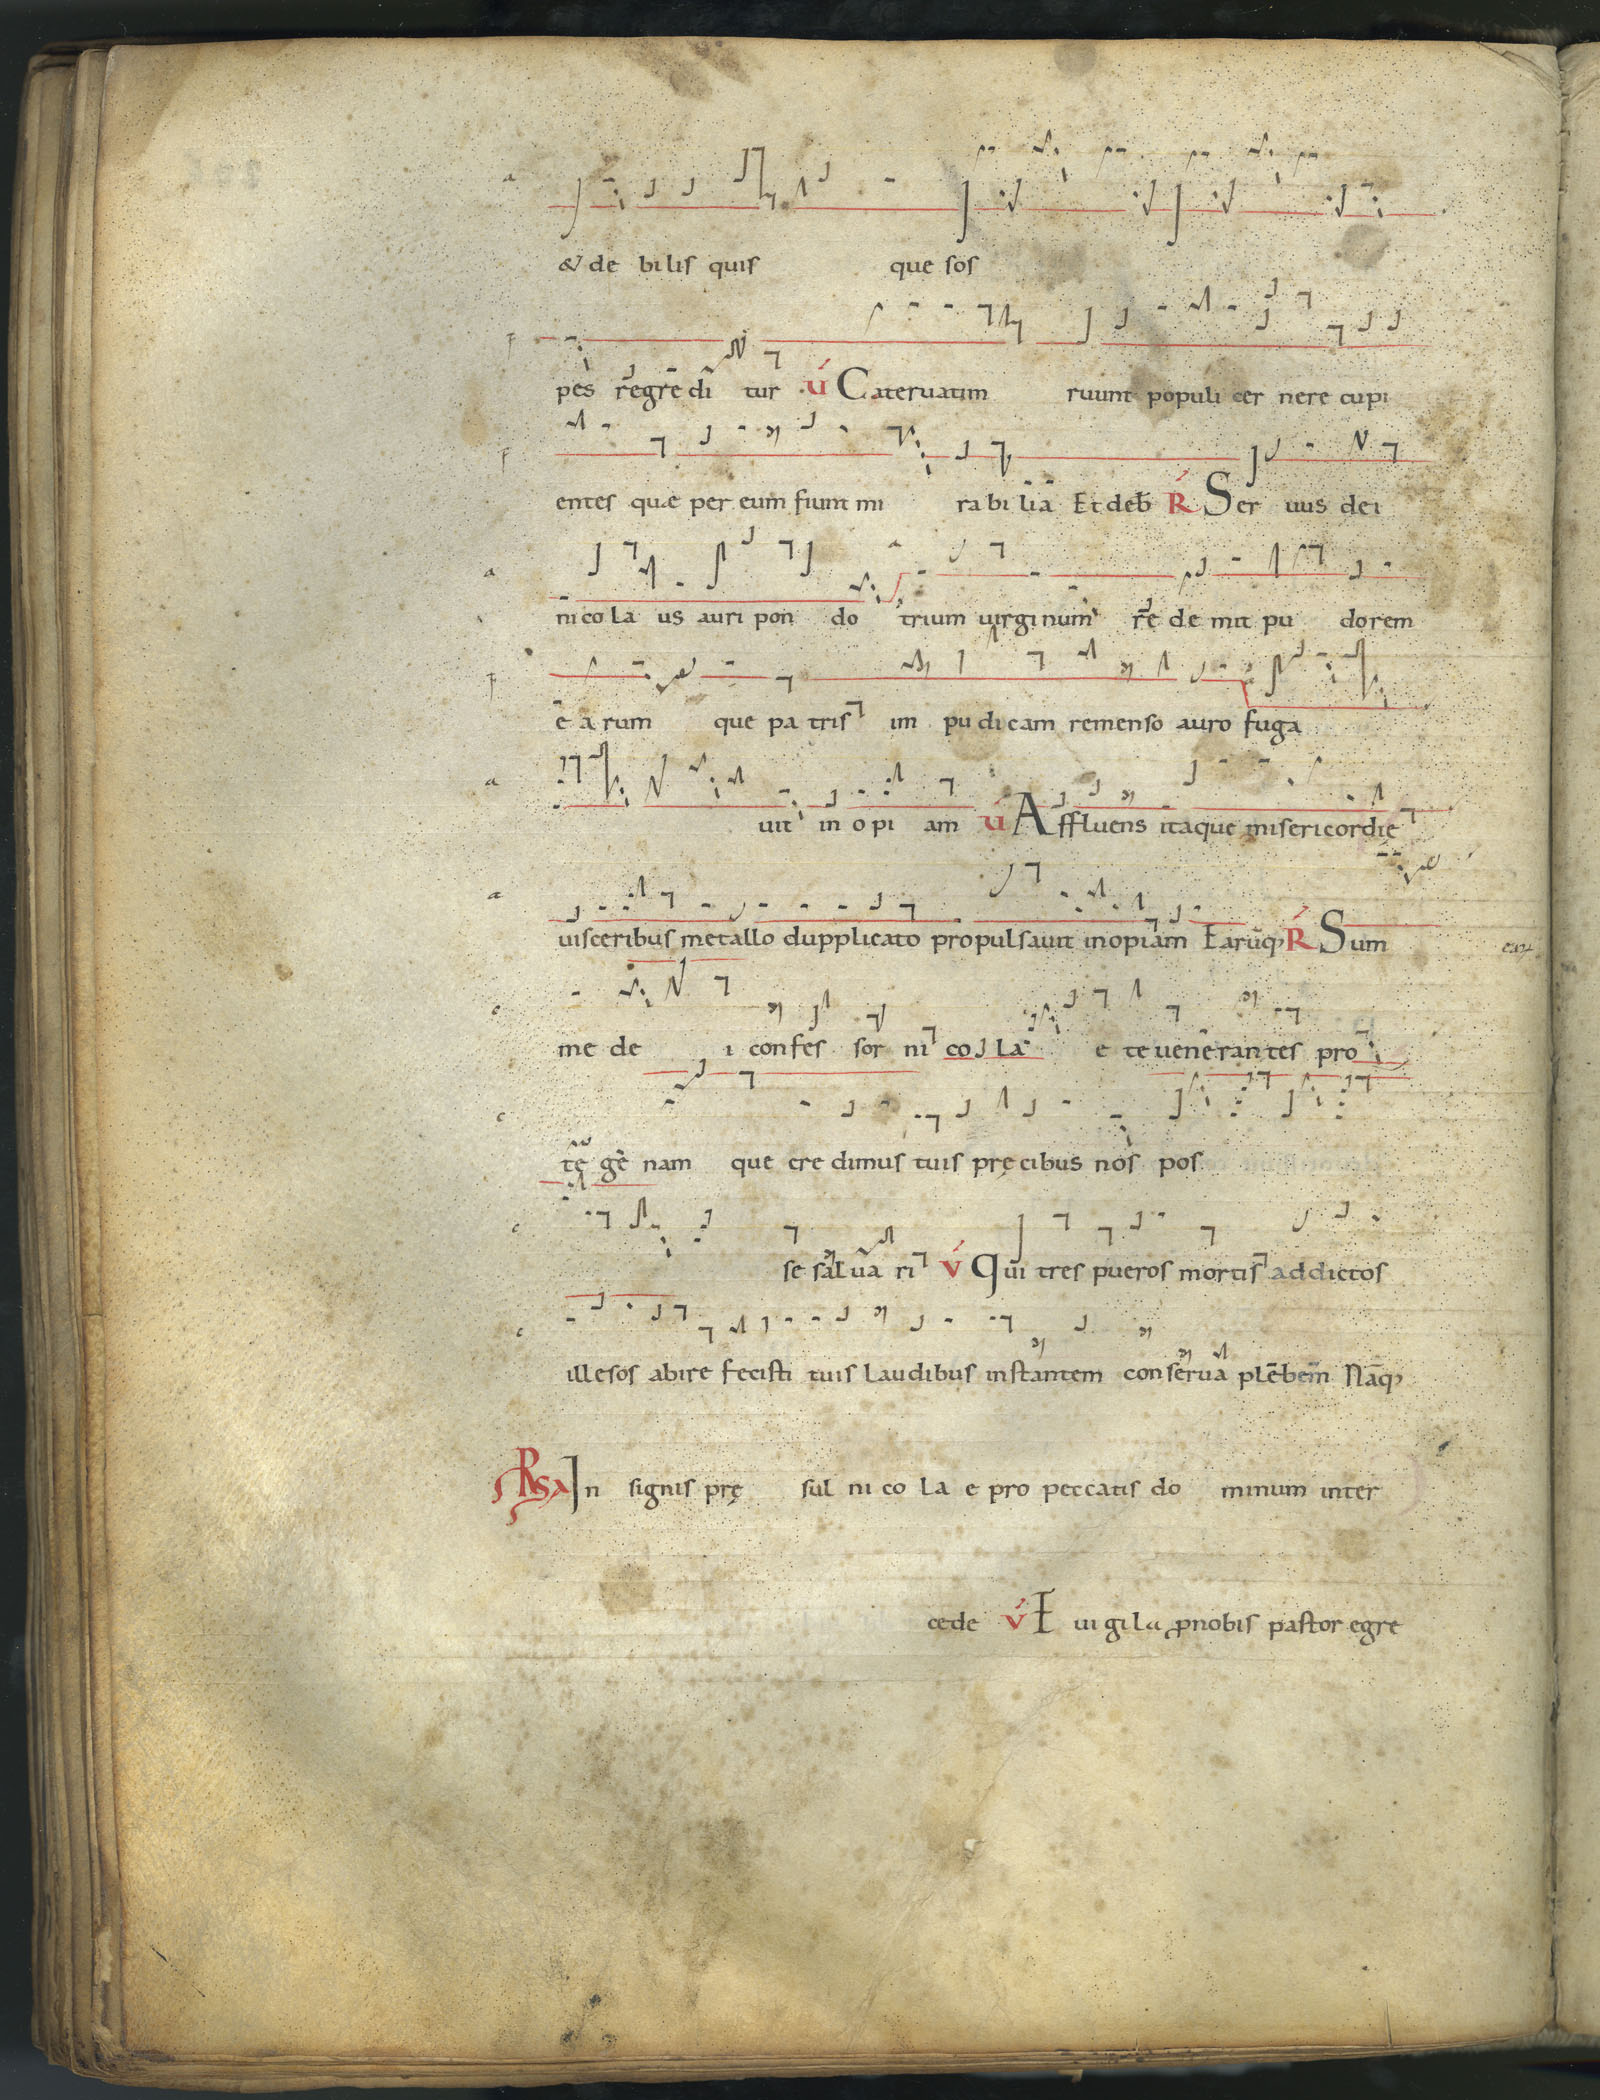 & de bilis quis que sos
pes regredi tur V Cateruatim ruunt populi cer nere cupi
entes quæ per eum fiunt mi ra bi lia Et deb R Ser uus dei
ni co la us auri pon do trium uirginum re de mit pu dorem
e a rum que pa tris im pu dicam remenso auro fuga
uit in o pi am V Affluens itaque misericordie
uisceribus metallo dupplicato propulsauit inopiam Earūq; R Sum
me de i confes sor ni co la e te uenerantes pro
te ge nam que cre dimus tuis pręcibus nos pos
se salua ri V Qui tres pueros mortis addictos
illesos abire fecisti tuis laudibus instantem conserua plebem Nāq;
In signis prę sul ni co la e pro peccatis do minum inter
cede V E ui gi la ꝓnobis pastor egre